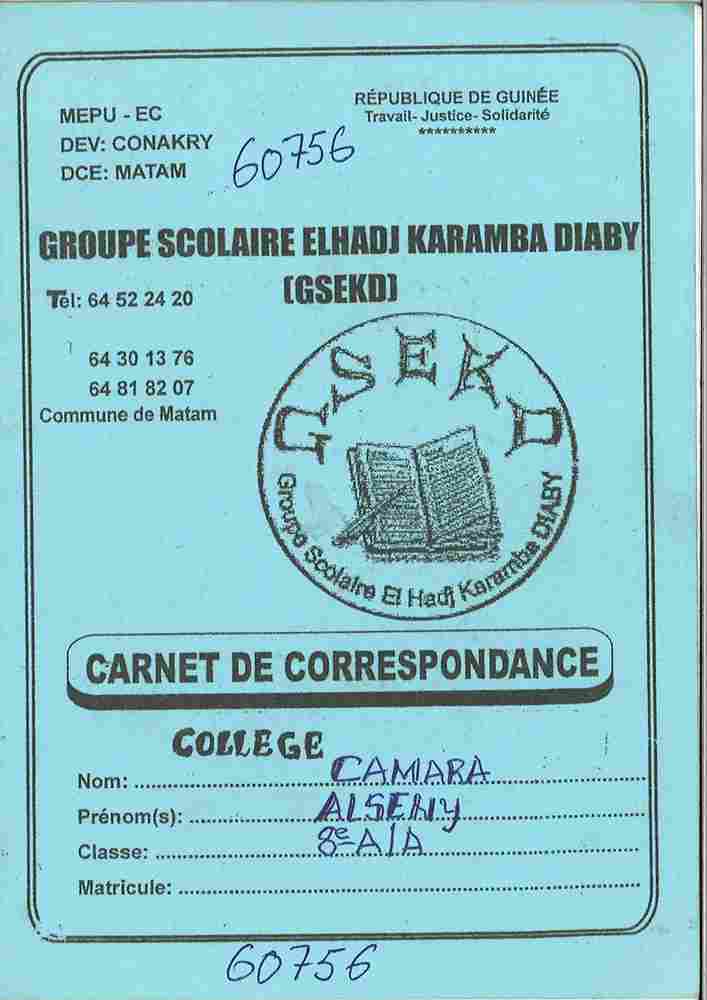 MEPU - EC
DEV: CONAKRY
DCE: MATAM
RÉPUBLIQUE DE GUINÉE
Travail- Justice- Solidarité
**********
60756
GROUPE SCOLAIRE ELHADJ KARAMBA DIABY
(GSEKD)
Tél: 64 52 24 20
64 30 13 76
64 81 82 07
Commune de Matam
GSEKD
Groupe Scolaire El Hadj Karamba DIABY
CARNET DE CORRESPONDANCE
COLLEGE
Nom: CAMARA
Prénom(s): ALSENY
Classe: 8e A/A
Matricule:
60756